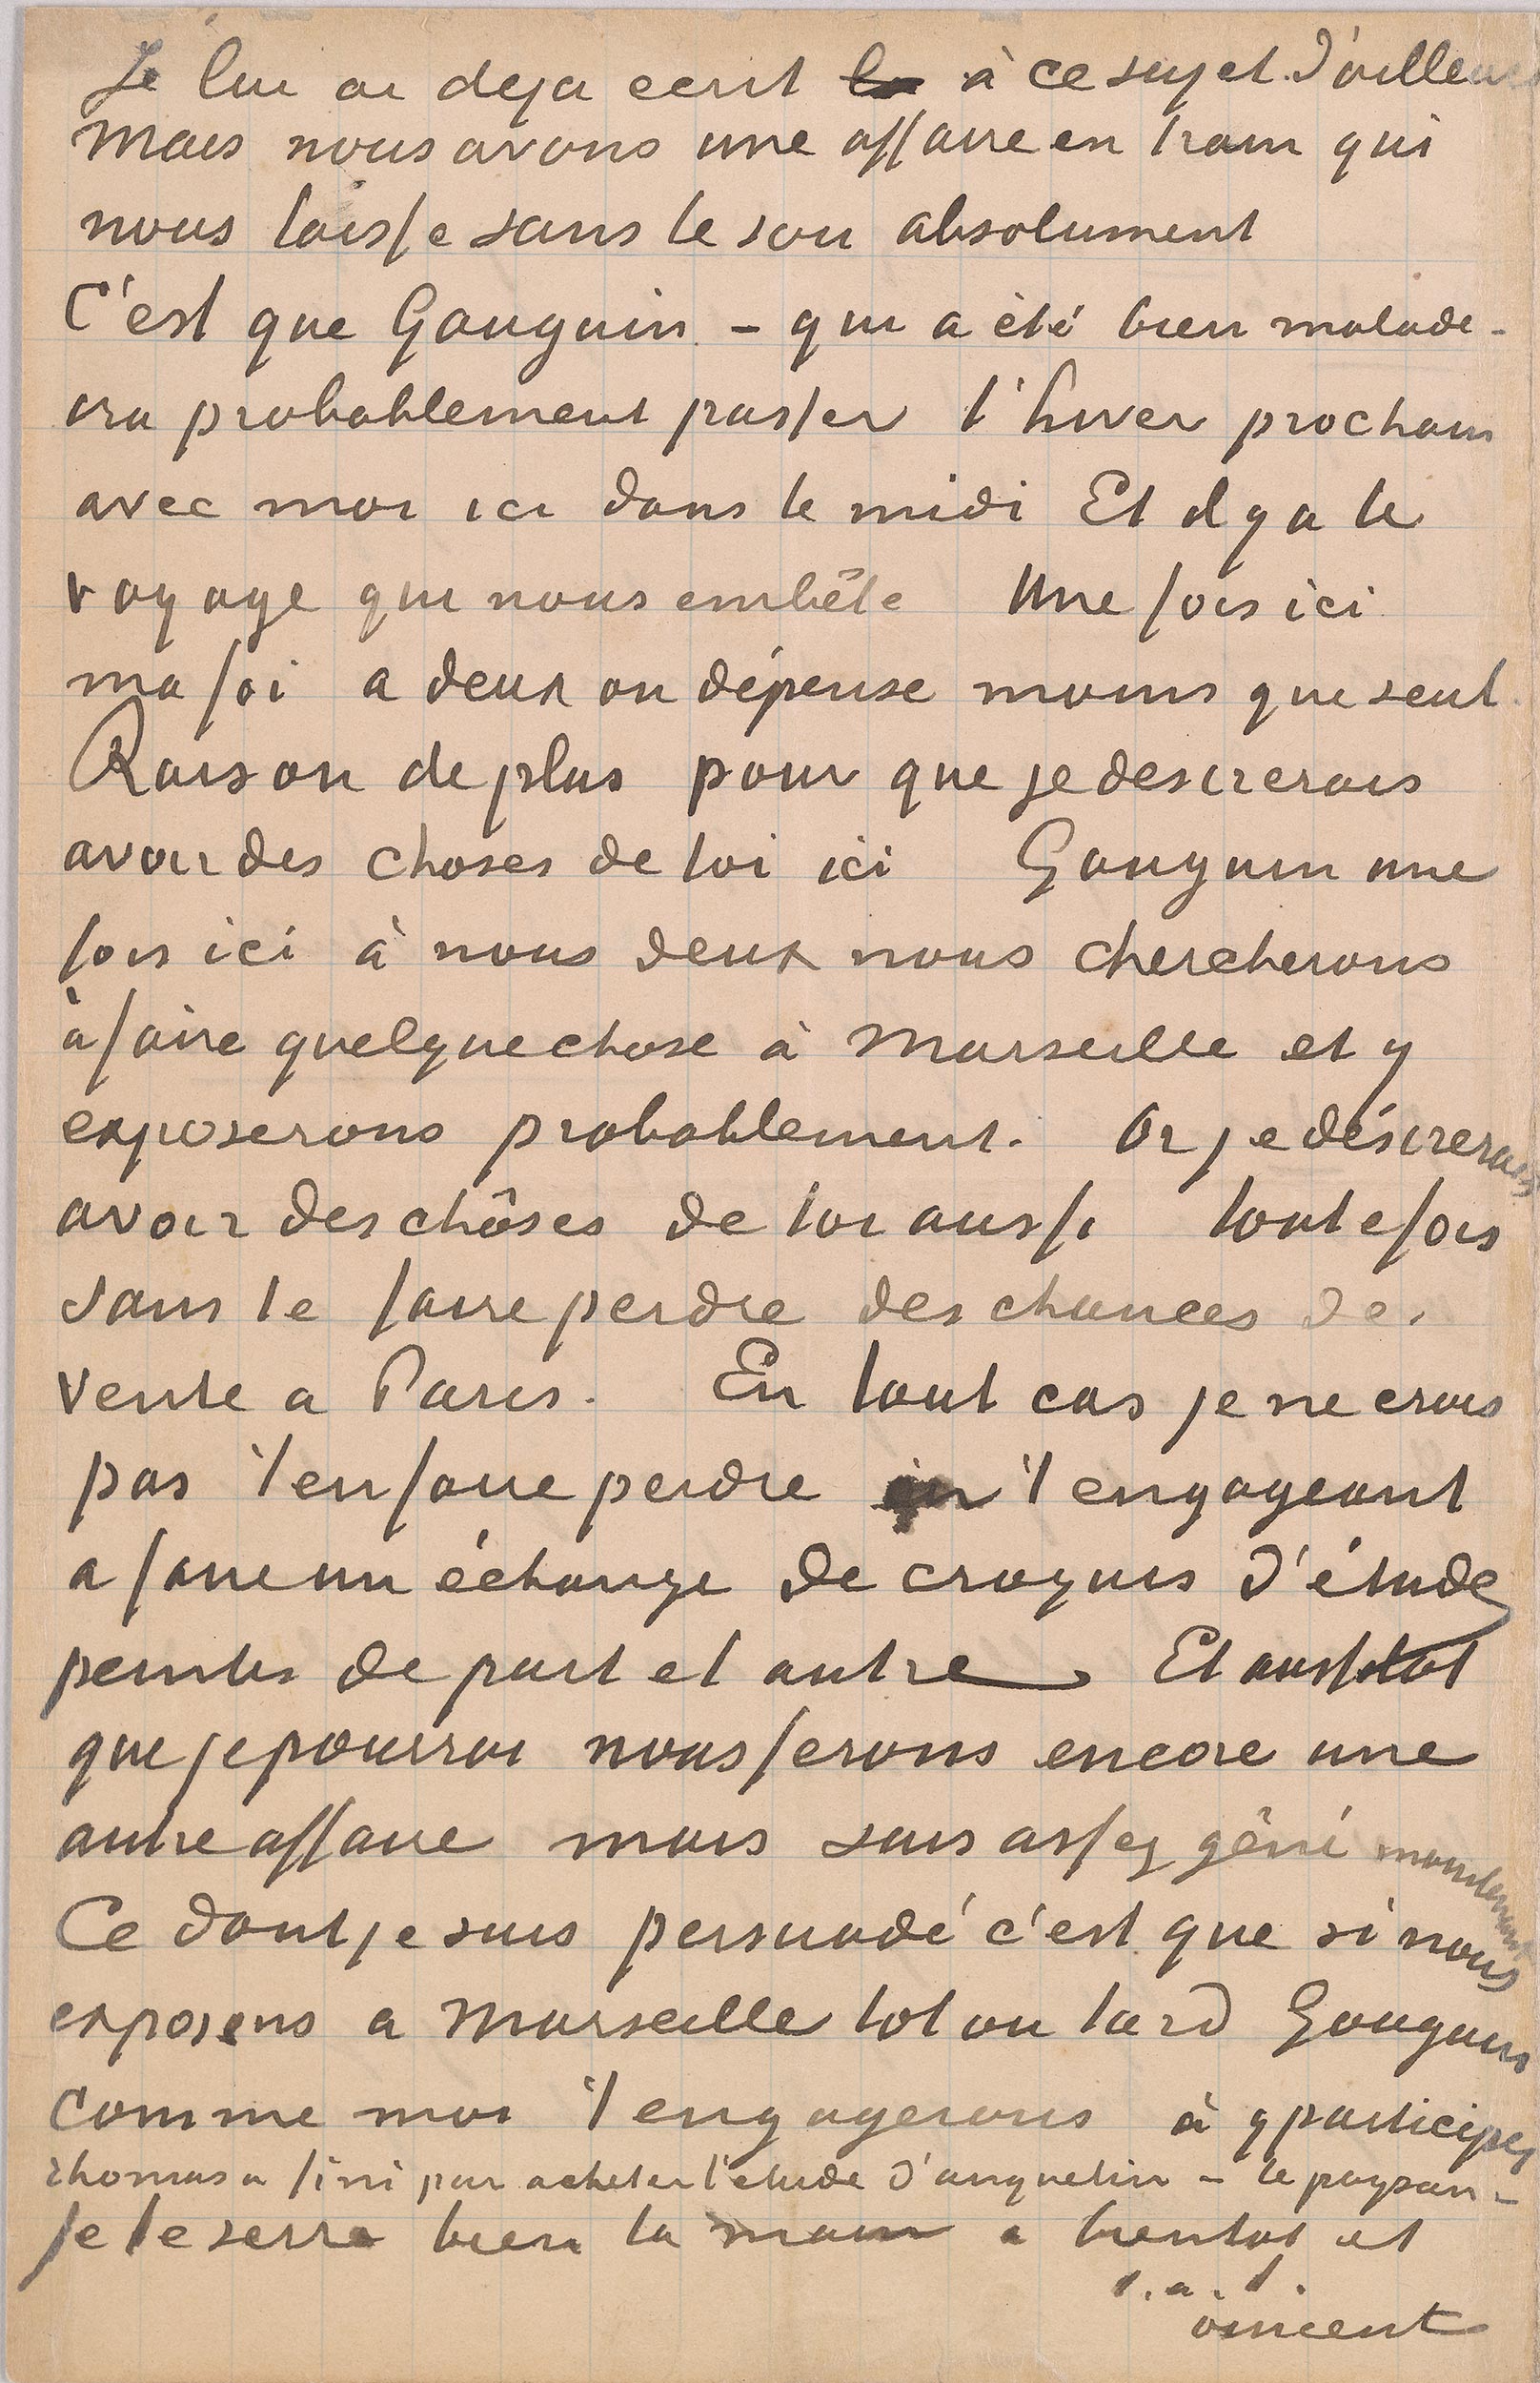 Je lui ai deja ecrit à ce sujet. D'ailleurs
Mais nous avons une affaire en train qui
nous laisse sans le sou absolument
C'est que Gauguin – qui a été bien malade –
ira probablement passer l'hiver prochain
avec moi ici dans le midi Et il y a le
voyage qui nous embête Une fois ici
ma foi a deux on dépense moins que seul.
Raison de plus pour que je desirerais
avoir des choses de toi ici Gauguin une
fois ici à nous deux nous chercherons
à faire quelquechose à Marseille et y
exposerons probablement. Or je désirerais
avoir des chôses de toi aussi toutefois
sans te faire perdre des chances de
vente a Paris. En tout cas je ne crois
pas t'en faire perdre en t'engageant
a faire un échange de croquis d'études
peintes de part et autre. Et aussitot
que je pourrai nous ferons encore une
autre affaire mais suis assez gêné maintenant
Ce dont je suis persuadé c'est que si nous
exposons a Marseille tot ou tard Gauguin
comme moi t'engagerons à y participer
Thomas a fini par acheter l'etude d'anquetin – le paysan –
Je te serre bien la main a bientot et
t. a. t.
vincent